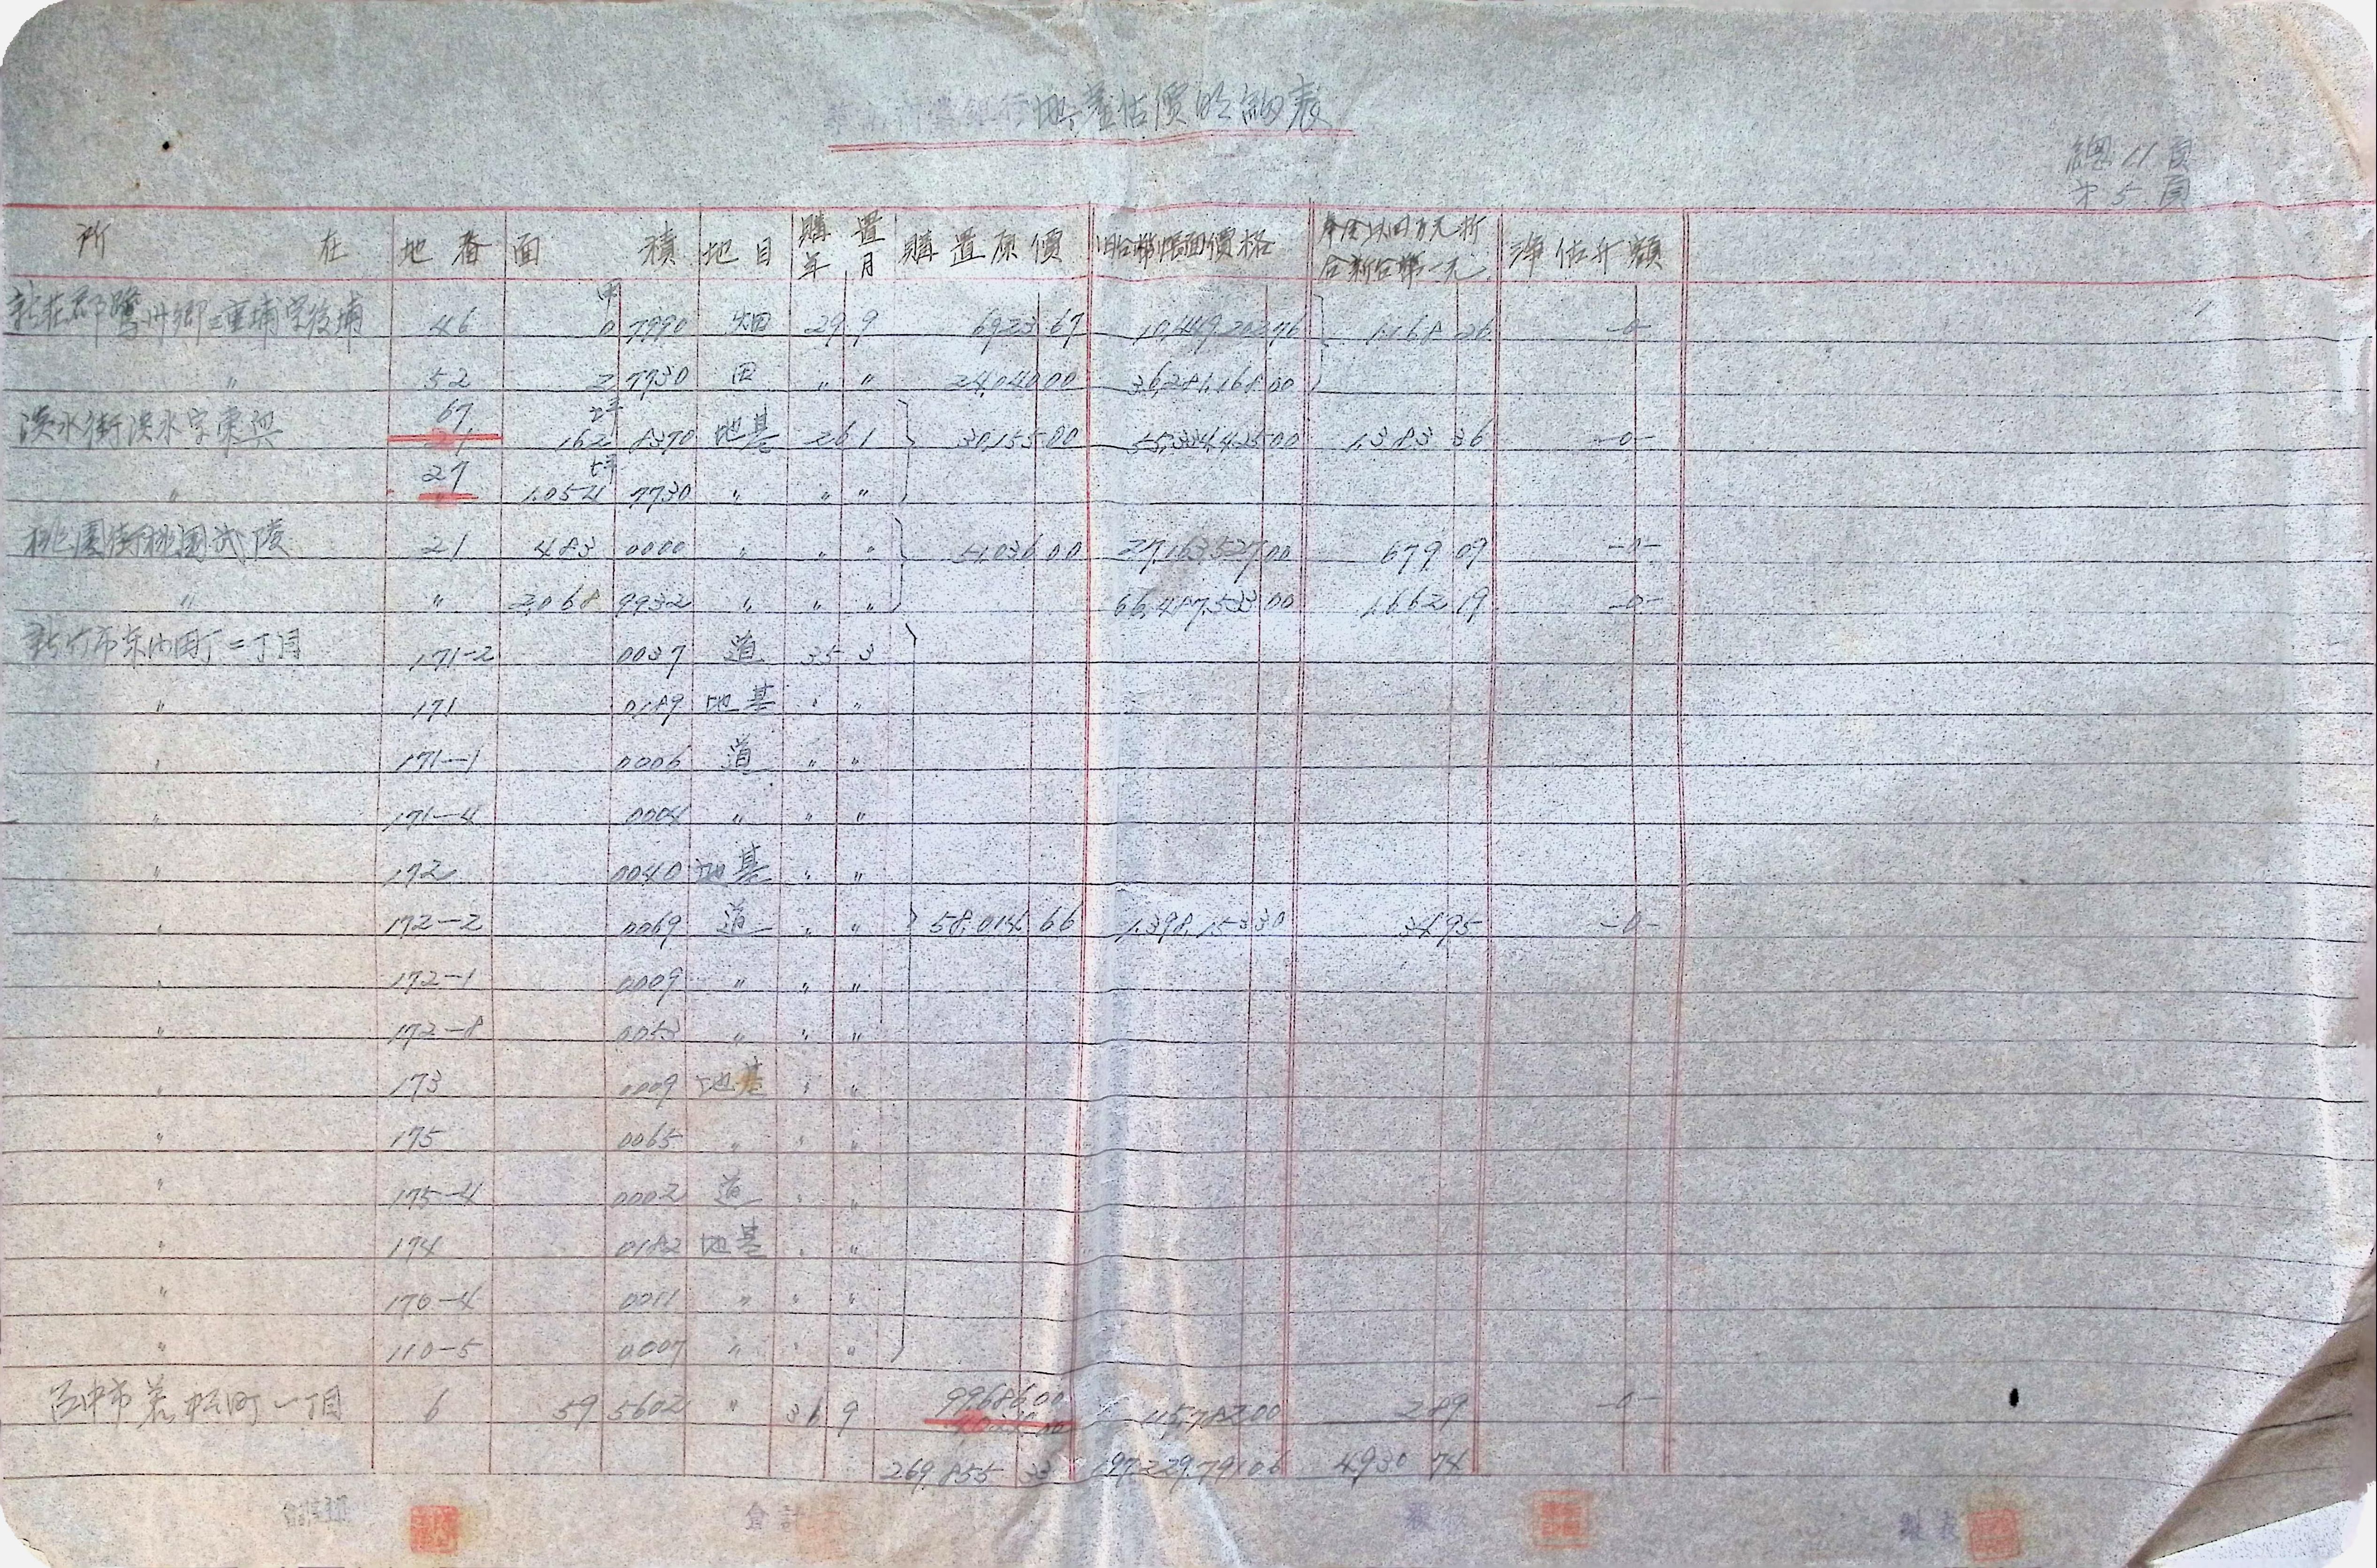 華南商業銀行地產估價明細表
總11頁
第5頁
所在 地番 面積 地目 購置年月 購置原價 旧台幣帳面價格 折合新台幣一元 淨估升額
新莊郡鷺洲鄉三重埔字後埔 46 甲 0 7990 畑 29 9 6923 67 10,449,202 76 1,168 26 -0-
〃 52 2 7730 田 〃 〃 24,040 00 36,281,168 00
淡水街淡水字東興 67 坪 162 8370 地基 26 1 30,155 00 55,334,425 00 1,383 36 -0-
〃 27 坪 1,054 7730 〃 〃 〃
桃園街桃園武陵 21 483 0000 〃 〃 〃 51,036 00 27,163,527 00 679 09 -0-
〃 〃 2,068 9932 〃 〃 〃 66,487,533 00 1,662 19 -0-
新竹市東門町二丁目 171-2 0037 道 35 3
〃 171 0189 地基 〃 〃
〃 171-1 0006 道 〃 〃
〃 171-4 0004 〃 〃 〃
〃 172 0040 地基 〃 〃
〃 172-2 0069 道 〃 〃 58,014 66 1,398,153 30 34 95 -0-
〃 172-1 0009 〃 〃 〃
〃 172-8 0053 〃 〃 〃
〃 173 0009 地基 〃 〃
〃 175 0065 〃 〃 〃
〃 175-4 0002 道 〃 〃
〃 174 0182 地基 〃 〃
〃 170-4 0011 〃 〃 〃
〃 110-5 0007 〃 〃 〃
台中市若松町一丁目 6 59 5602 〃 36 9 99,686 00 115,782 00 2 89 -0-
269,855 33 197,229,791 06 4930 74
會計